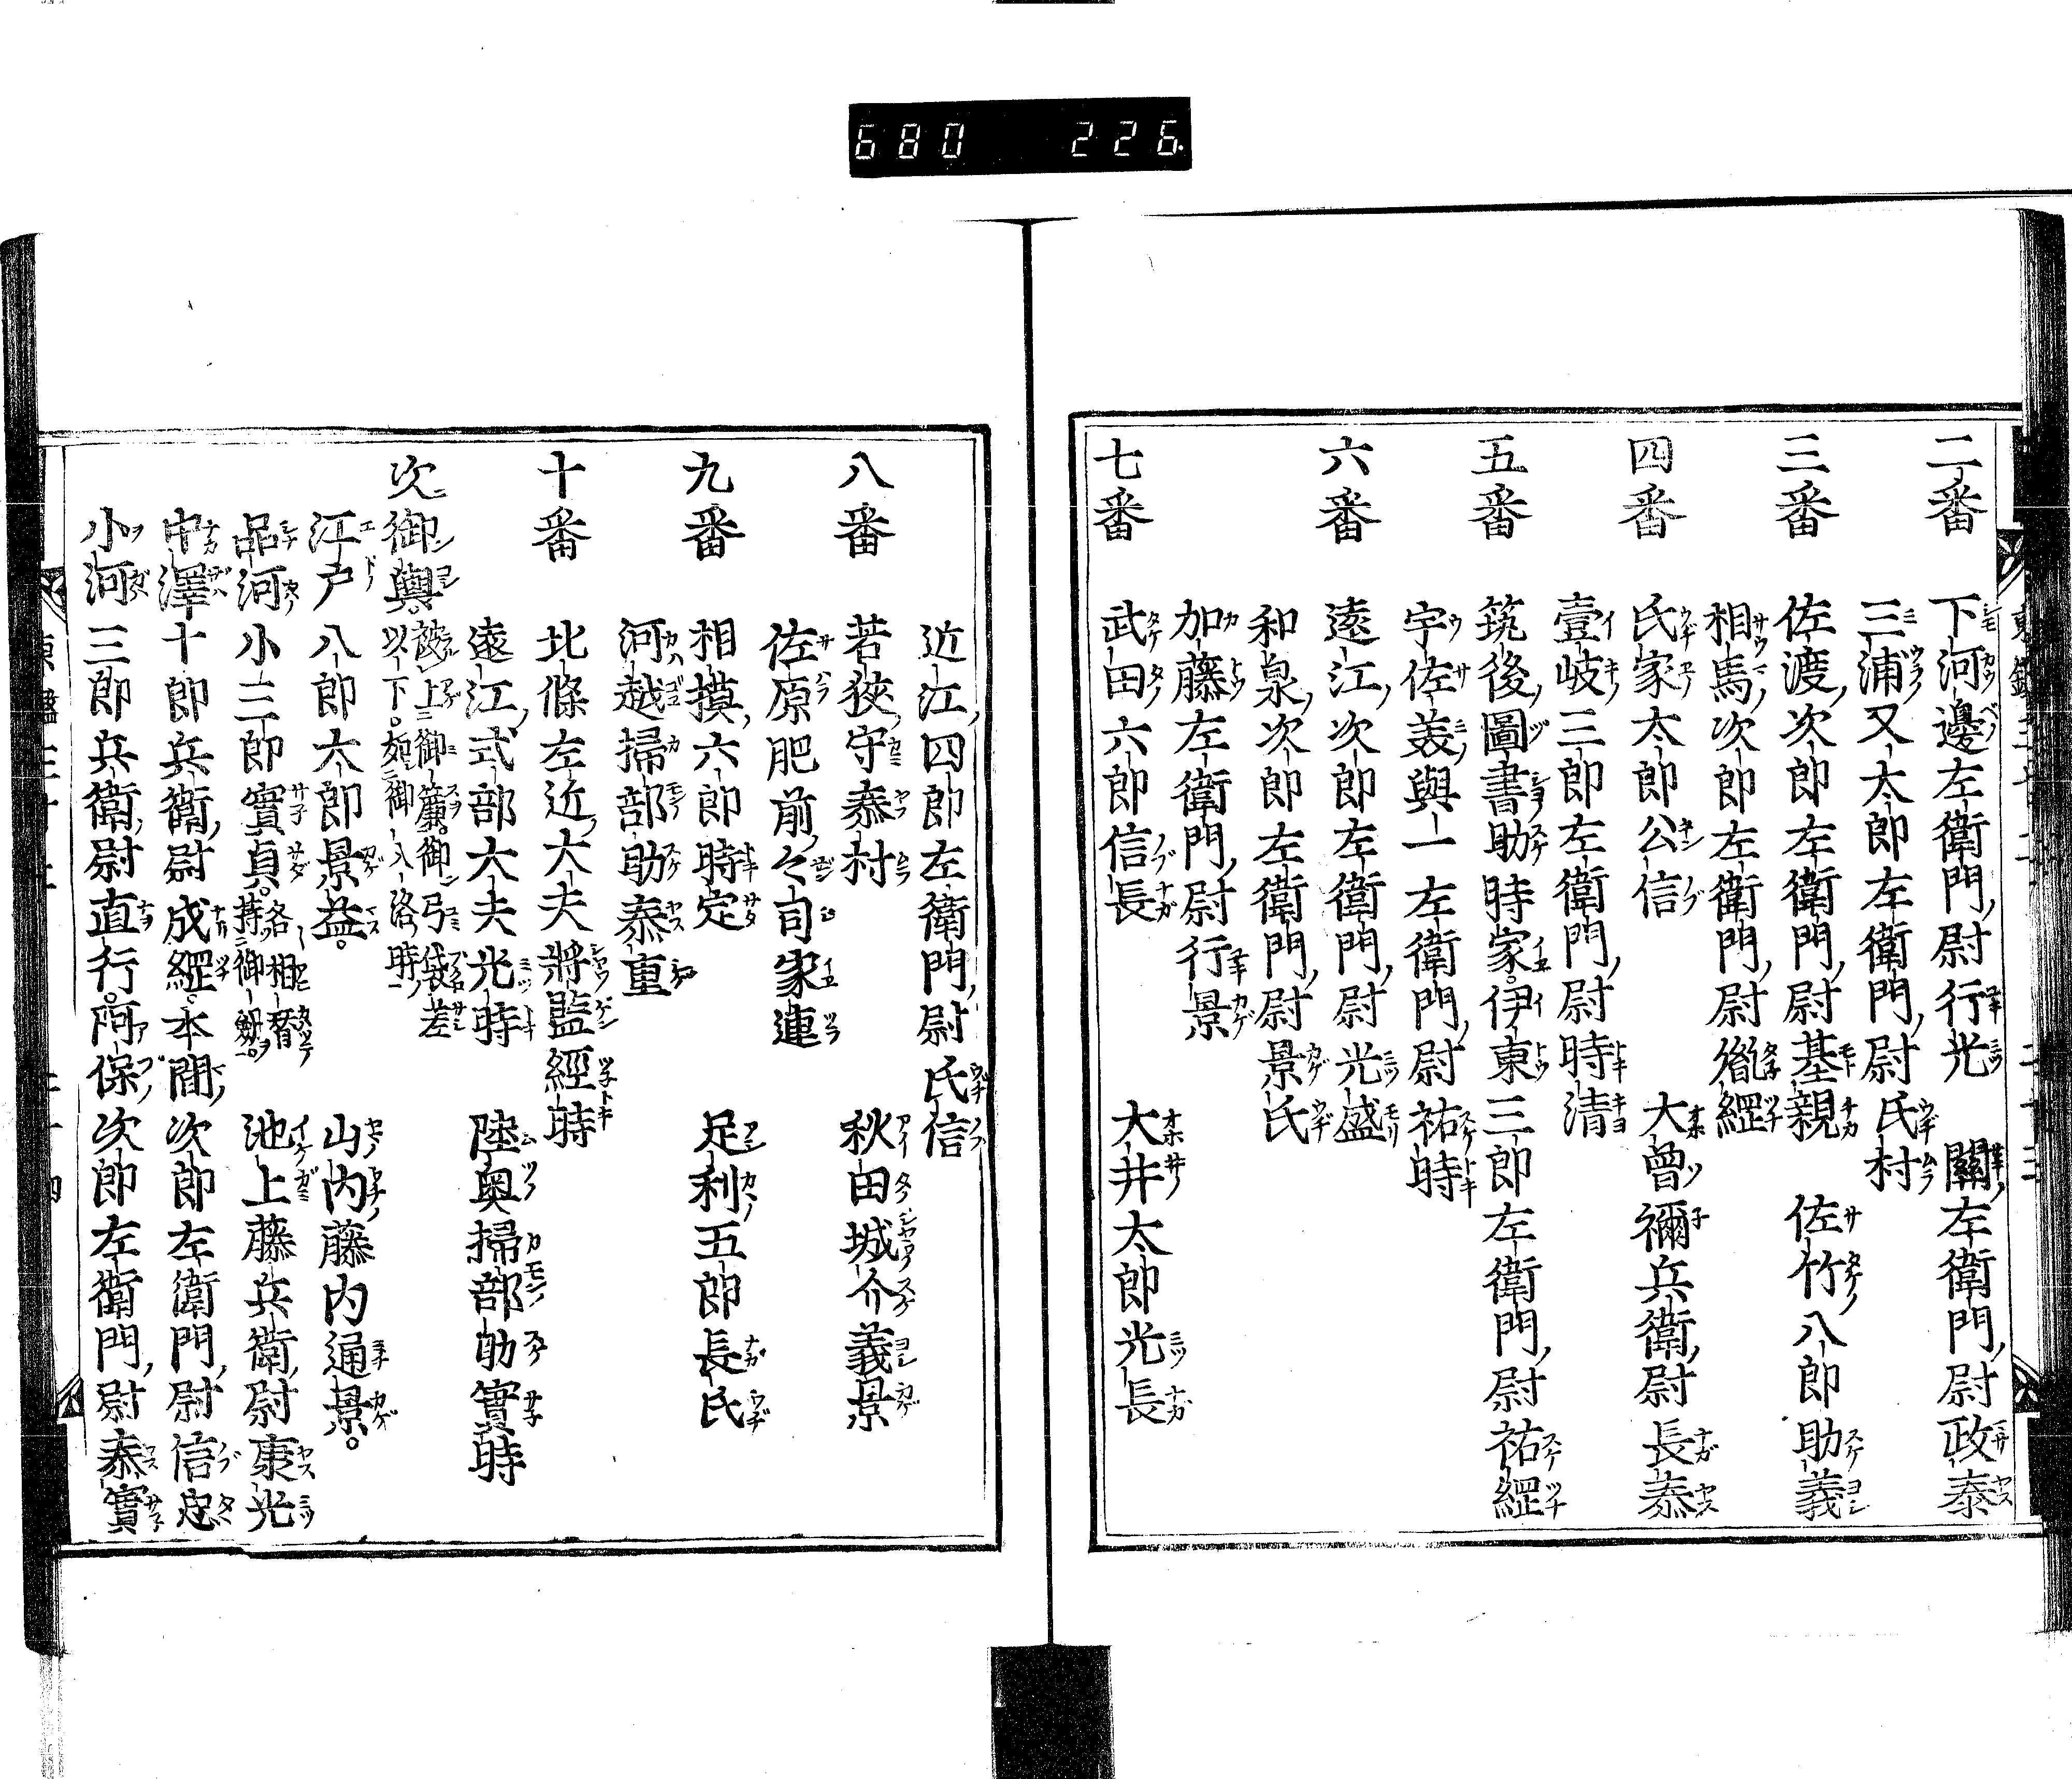 680 226
二番 下河邊左衛門尉行光 關左衛門尉政泰
三浦又太郎左衛門尉氏村
三番 佐渡次郎左衛門尉基親 佐竹八郎助義
相馬次郎左衛門尉胤經
四番 氏家太郎公信 大曾禰兵衛尉長泰
壹岐三郎左衛門尉時清
五番 筑後圖書助時家 伊東三郎左衛門尉祐經
宇佐美與一左衛門尉祐時
六番 遠江次郎左衛門尉光盛
和泉次郎左衛門尉景氏
加藤左衛門尉行景
七番 武田六郎信長 大井太郎光長
近江四郎左衛門尉氏信
八番 若狹守泰村 秋田城介義景
佐原肥前々司家連
九番 相摸六郎時定 足利五郎長氏
河越掃部助泰重
十番 北條左近大夫將監經時
遠江式部大夫光時 陸奧掃部助實時
次御輿。被上御簾。御弓袋差以下。如御入洛時
江戸八郎太郎景益。 山内藤内通景。
品河小三郎實貞。各相替持御劔。 池上藤兵衛尉康光
中澤十郎兵衛尉成經。本間次郎左衛門尉信忠
小河三郎兵衛尉直行。阿保次郎左衛門尉泰實